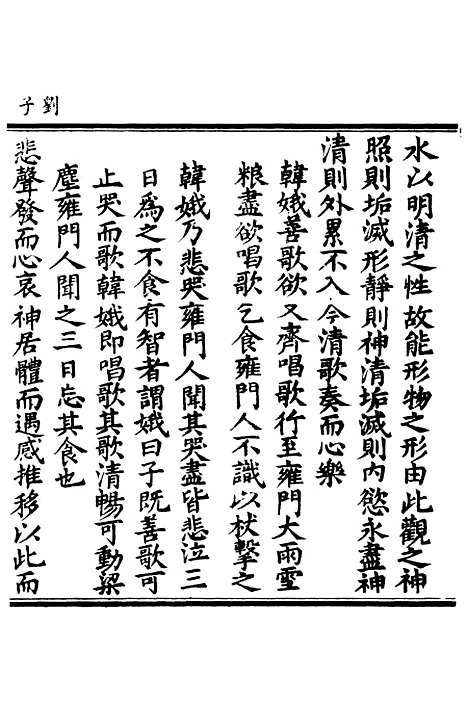 劉子
水以明清之性故能形物之形由此觀之神
照則垢滅形靜則神清垢滅則內慾永盡神
清則外累不入今清歌奏而心樂
韓娥善歌欲又齊唱歌行至雍門大雨雪
粮盡欲唱歌乞食雍門人不識以杖擊之
韓娥乃悲哭雍門人聞其哭盡皆悲泣三
日為之不食有智者謂娥曰子既善歌可
止哭而歌韓娥即唱歌其歌清暢可動梁
塵雍門人聞之三日忘其食也
悲聲發而心哀神居體而遇感推移以此而